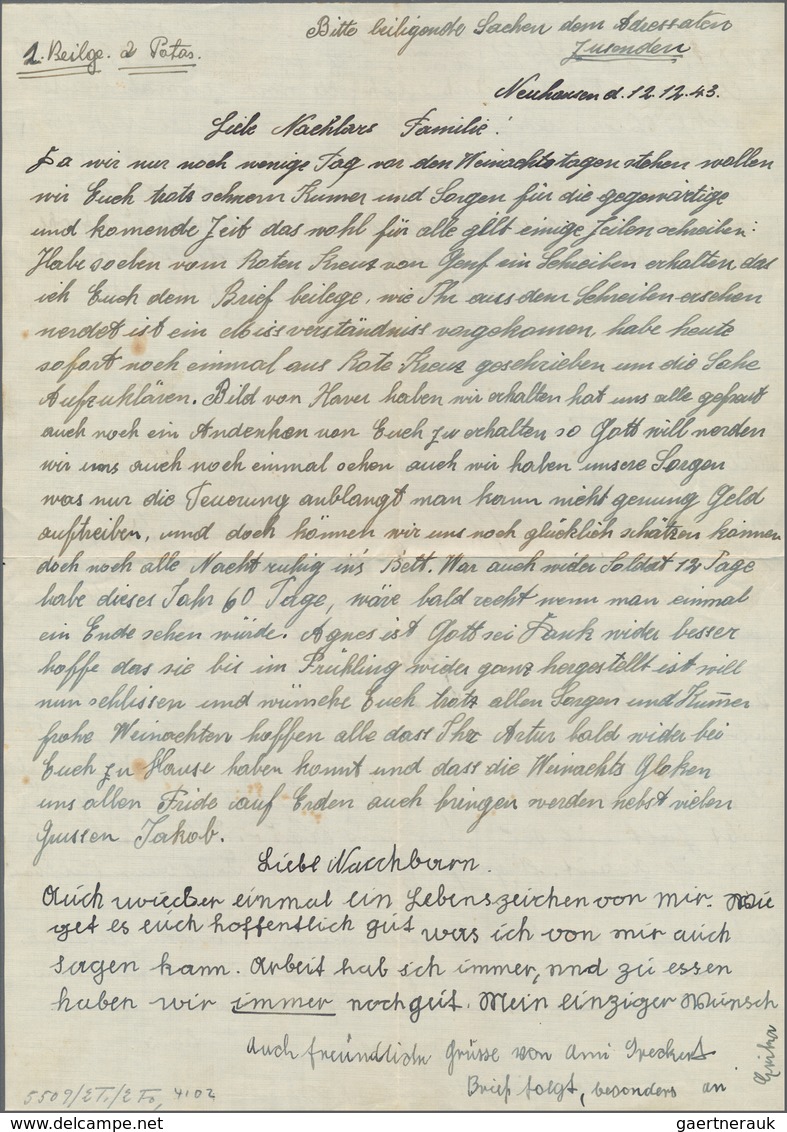 Bitte beiligende Sachen dem Adressaten
zusenden
1. Beilge. 2 Potos.
Neuhausen d. 12.12.43.
Liebe Nachbars Familie!
Da wir nur noch wenige Tag vor den Weinachtstagen stehen wollen
wir Euch trotz schwern Kumer und Sorgen für die gegewärtige
und komende Zeit das wohl für alle gilt einige Zeilen schreiben:
Habe soeben vom Roten Kreuz von Genf ein Schreiben erhalten das
ich Euch dem Brief beilege, wie Ihr aus dem Schreiben ersehen
werdet ist ein Missverständniss vorgekomen, habe heute
sofort noch einmal aus Rote Kreuz geschrieben um die Sahe
Aufzuklären. Bild von Haver haben wir erhalten hat uns alle gefreut
auch noch ein Andenken von Euch zu erhalten so Gott will werden
wir uns auch noch einmal sehen auch wir haben unsere Sorgen
was nur die Teuerung anblangt man kann nicht genung Geld
auftreiben, und doch können wir uns noch glücklich schätzen können
doch noch alle Nacht ruhig in's Bett. War auch wider Soldat 12 Tage
habe dieses Jahr 60 Tage, wäre bald recht wenn man einmal
ein Ende sehen würde. Agnes ist Gott sei Dank wider besser
hoffe das sie bis im Frühling wider ganz hergestellt ist will
nun schlissen und wünsche Euch trotz allen Sorgen und Kumer
frohe Weinachten hoffen alle dass Ihr Artur bald wider bei
Euch zu Hause haben konnt und dass die Weinachts Gloken
uns allen Fride auf Erden auch bringen werden nebst vielen
Grussen Jakob.
Liebe Nacchbarn.
Auch wiecber einmal ein Lebenszeichen von mir. Wie
get es euch hoffentlich gut was ich von mir auch
sagen kann. Arbeit hab ich immer, und zu essen
haben wir immer noch gut. Mein einziger Wunsch
auch freundliche Grüsse von Ami
Brief folgt, besonders an
5509/2T./2Fo, 4102
gaertnerauk